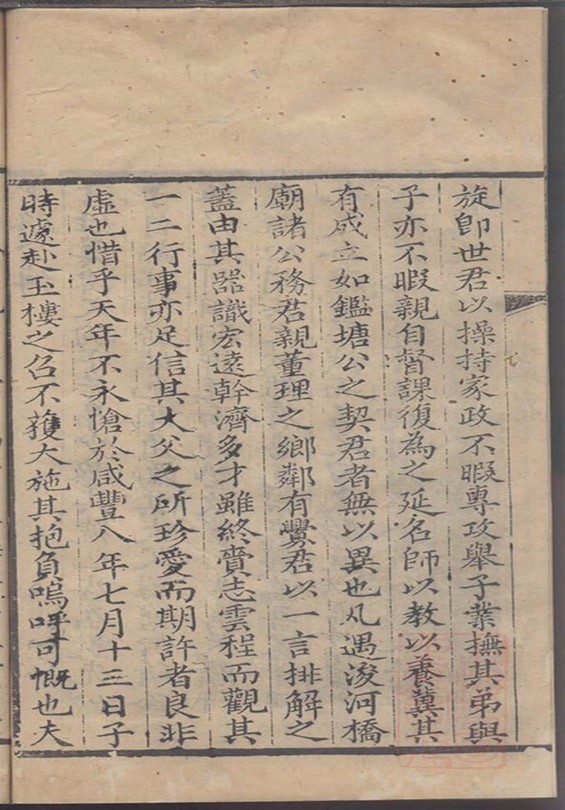 旋卽世君以操持家政不暇專攻舉子業撫其弟與
子亦不暇親自督課復為之延名師以教以養冀其
有成立如鑑塘公之契君者無以異也凡遇浚河橋
廟諸公務君親董理之鄉鄰有釁君以一言排解之
蓋由其器識宏遠幹濟多才雖終賫志雲程而觀其
一二行事亦足信其大父之所珍愛而期許者良非
虛也惜乎天年不永愴於咸豐八年七月十三日子
時遽赴玉樓之召不獲大施其抱負嗚呼可慨也夫